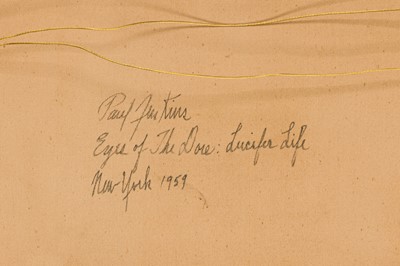 Paul Jenkins
Eyes of The Dove: Lucifer Life
New York 1959